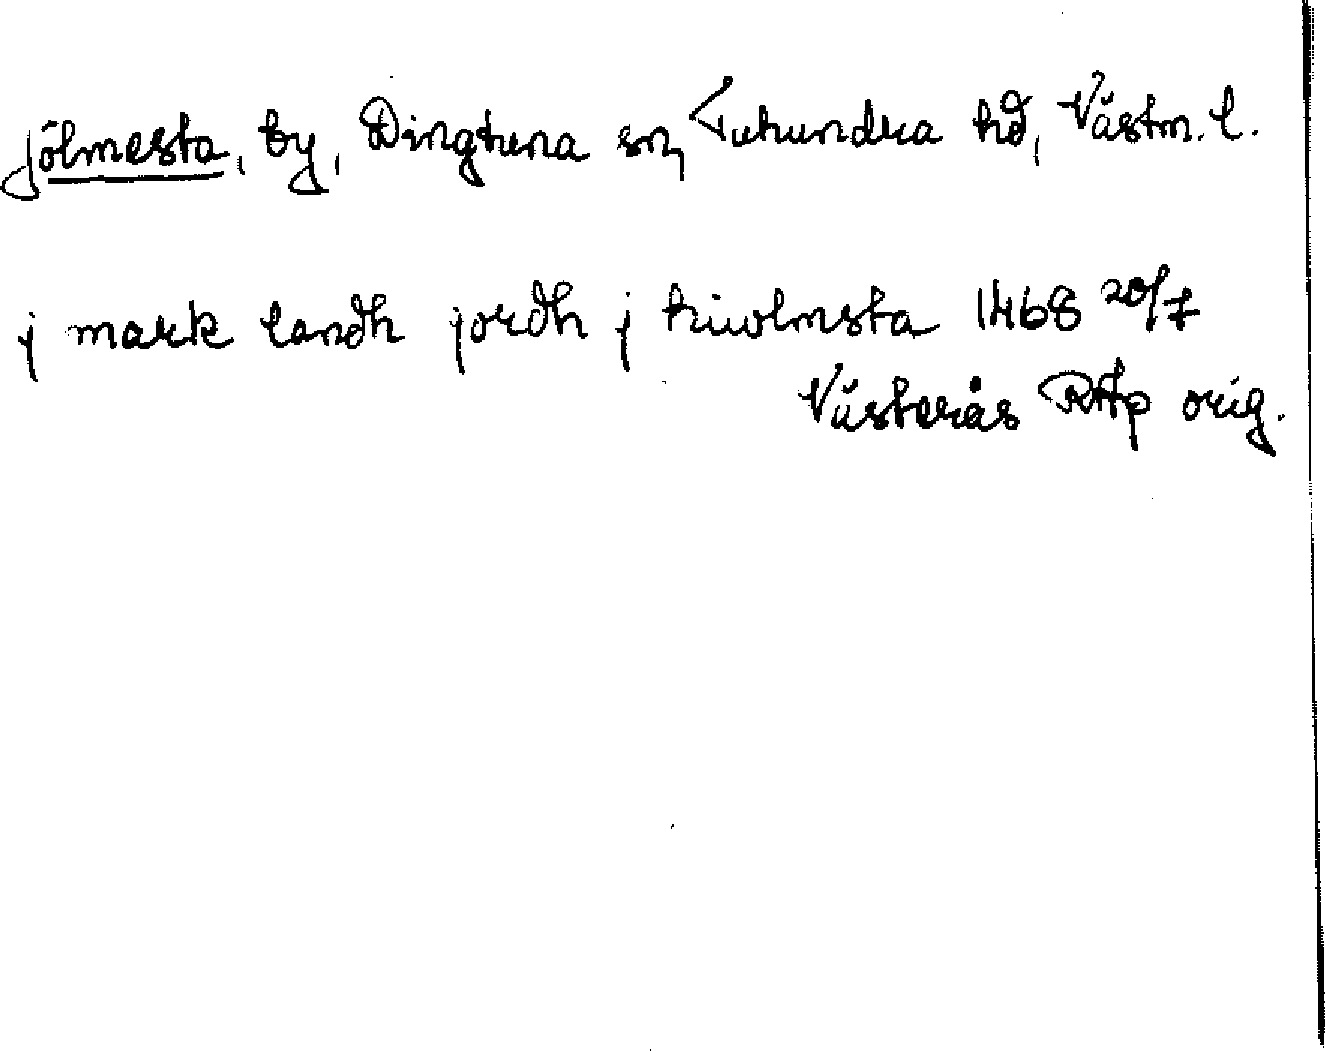 jölmesta, by, Dingtuna sn, Tuhundra hd, Västm. l.
j mark landh jordh j hiwolmsta 1468 20/7
Västerås RAp orig.